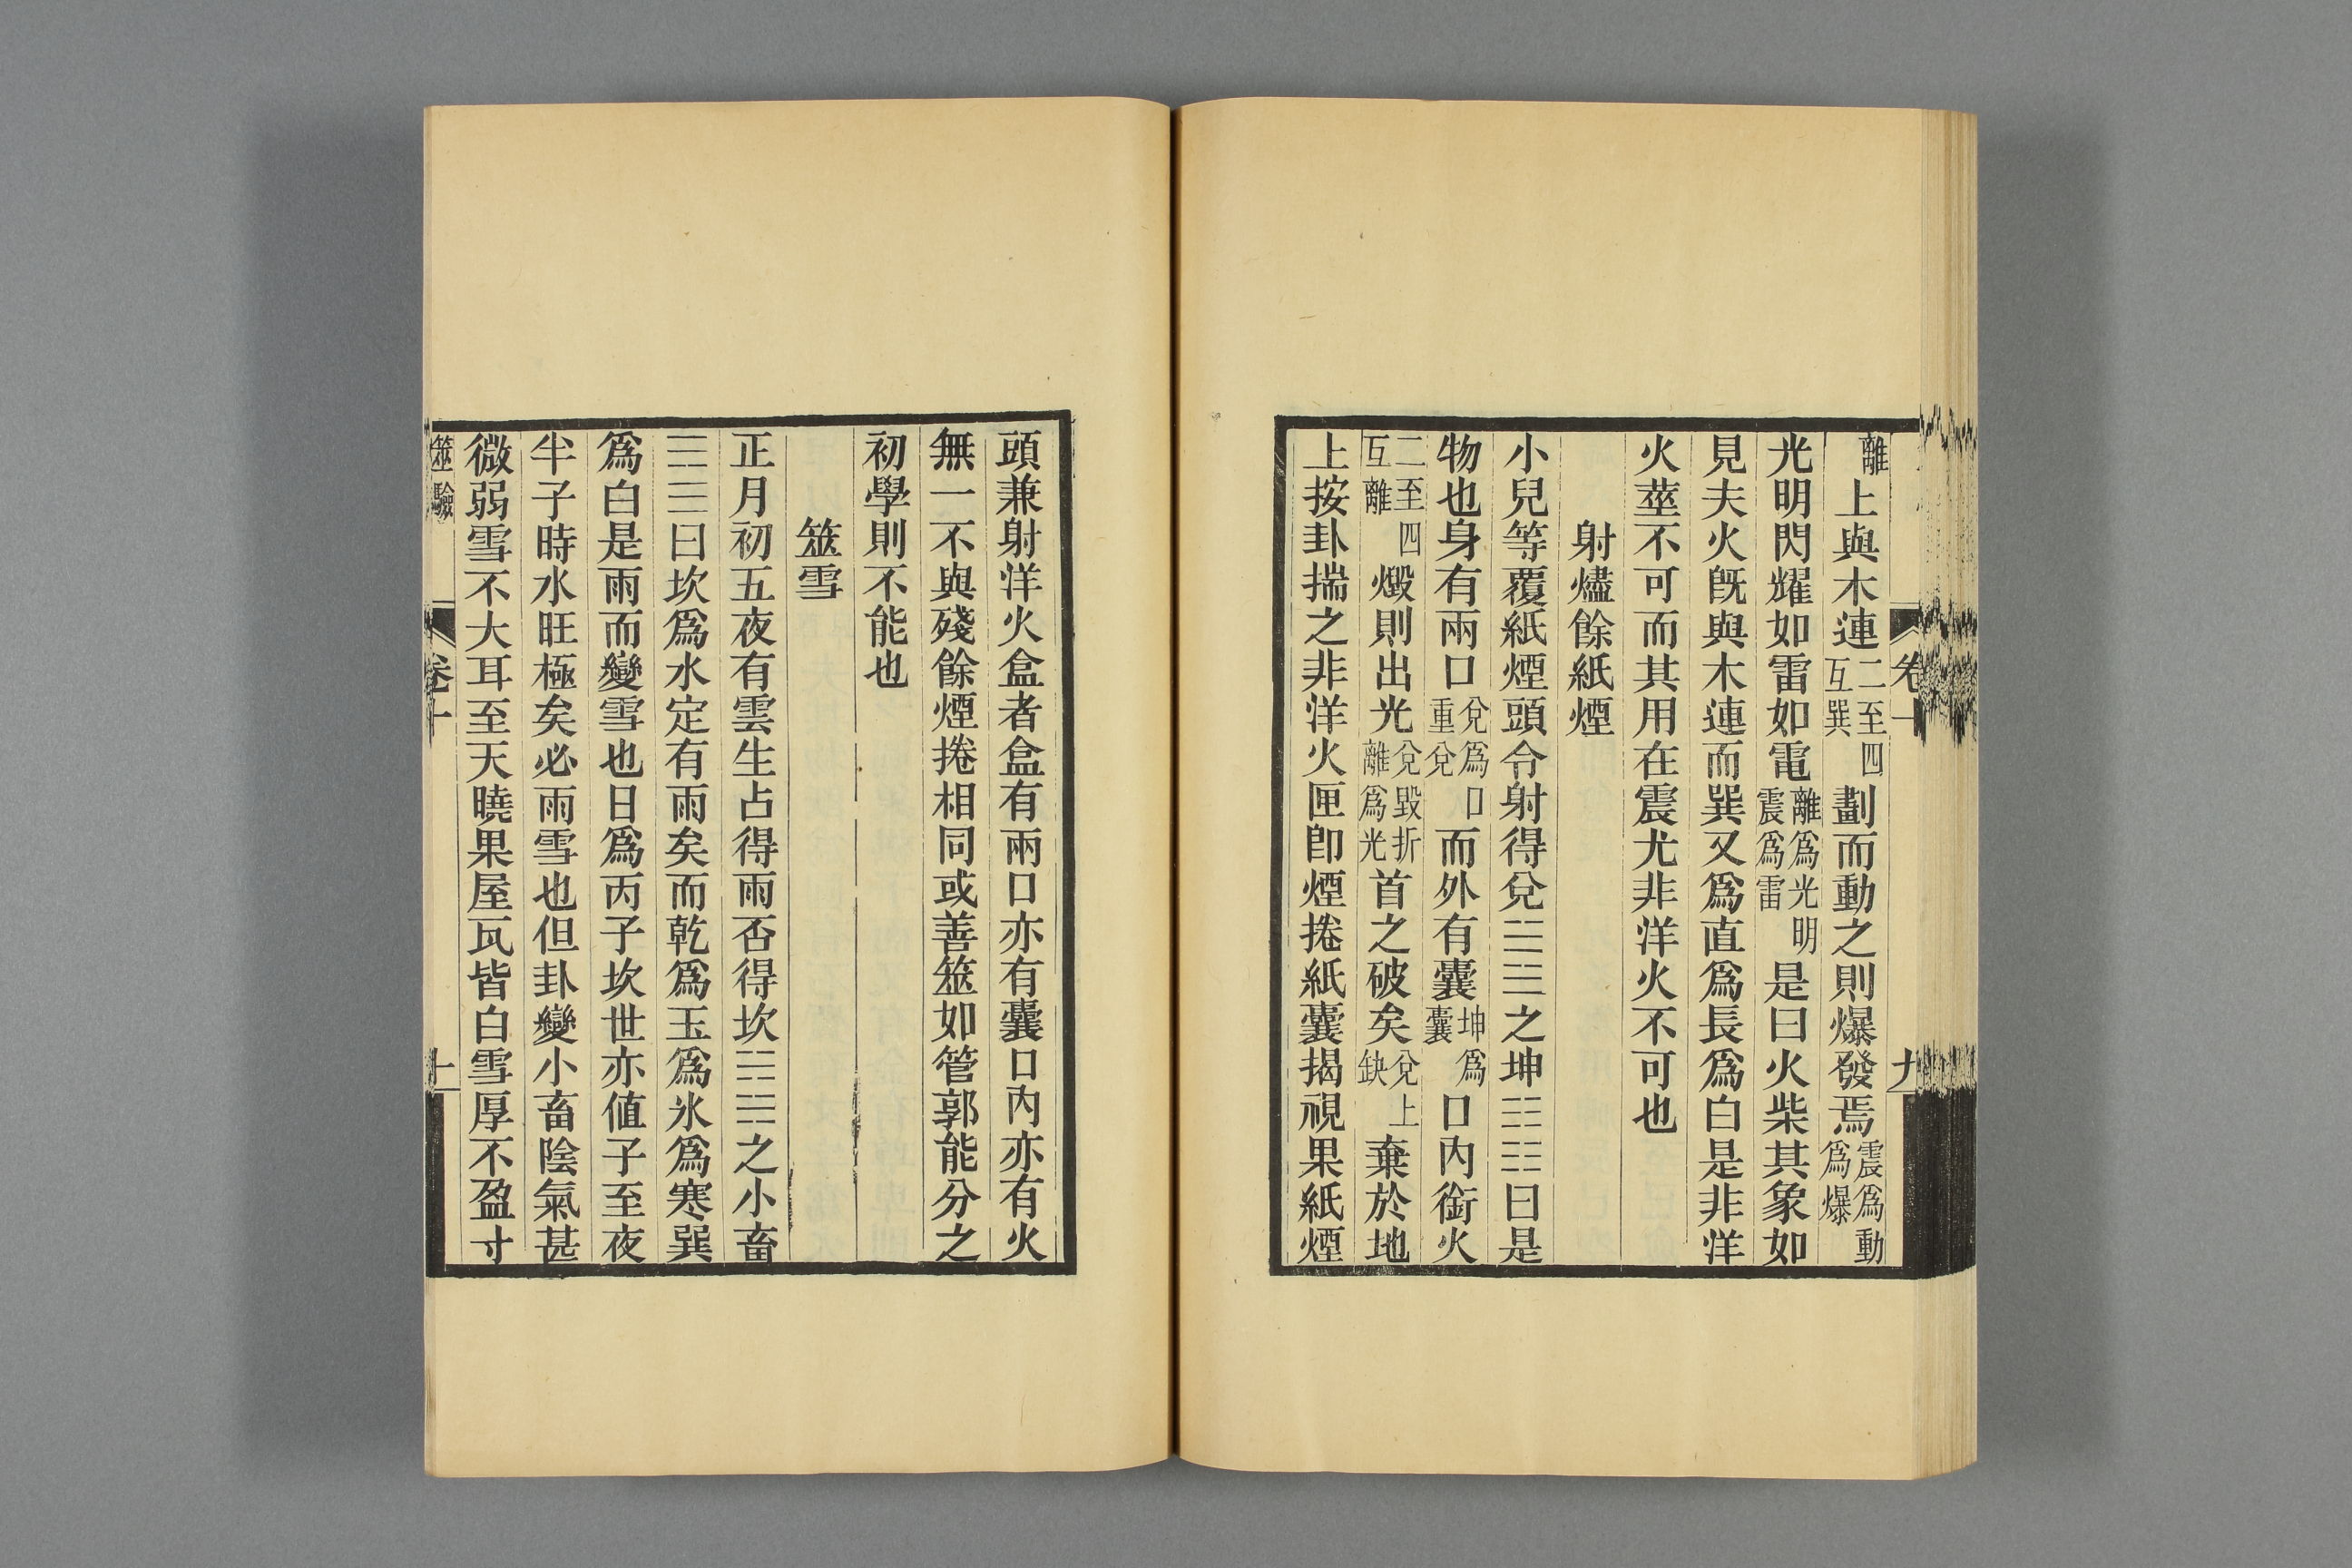 卷十 九
離上與木連二至四互巽劃而動之則爆發焉震爲動爲爆
光明閃耀如雷如電離爲光明震爲雷是曰火柴其象如
見夫火旣與木連而巽又爲直爲長爲白是非洋
火莖不可而其用在震尤非洋火不可也
射燼餘紙煙
小兒等覆紙煙頭令射得兌☱☱之坤☷☷曰是
物也身有兩口兌爲口重兌而外有囊坤爲囊口內銜火
二至四互離燬則出光兌毀折離爲光首之破矣兌上缺棄於地
上按卦揣之非洋火匣卽煙捲紙囊揭視果紙煙
頭兼射洋火盒者盒有兩口亦有囊口內亦有火
無一不與殘餘煙捲相同或善筮如管郭能分之
初學則不能也
筮雪
正月初五夜有雲生占得雨否得坎☵☵之小畜
☴☰曰坎爲水定有雨矣而乾爲玉爲氷爲寒巽
爲白是雨而變雪也日爲丙子坎世亦值子至夜
半子時水旺極矣必雨雪也但卦變小畜陰氣甚
微弱雪不大耳至天曉果屋瓦皆白雪厚不盈寸
筮驗 卷十 十